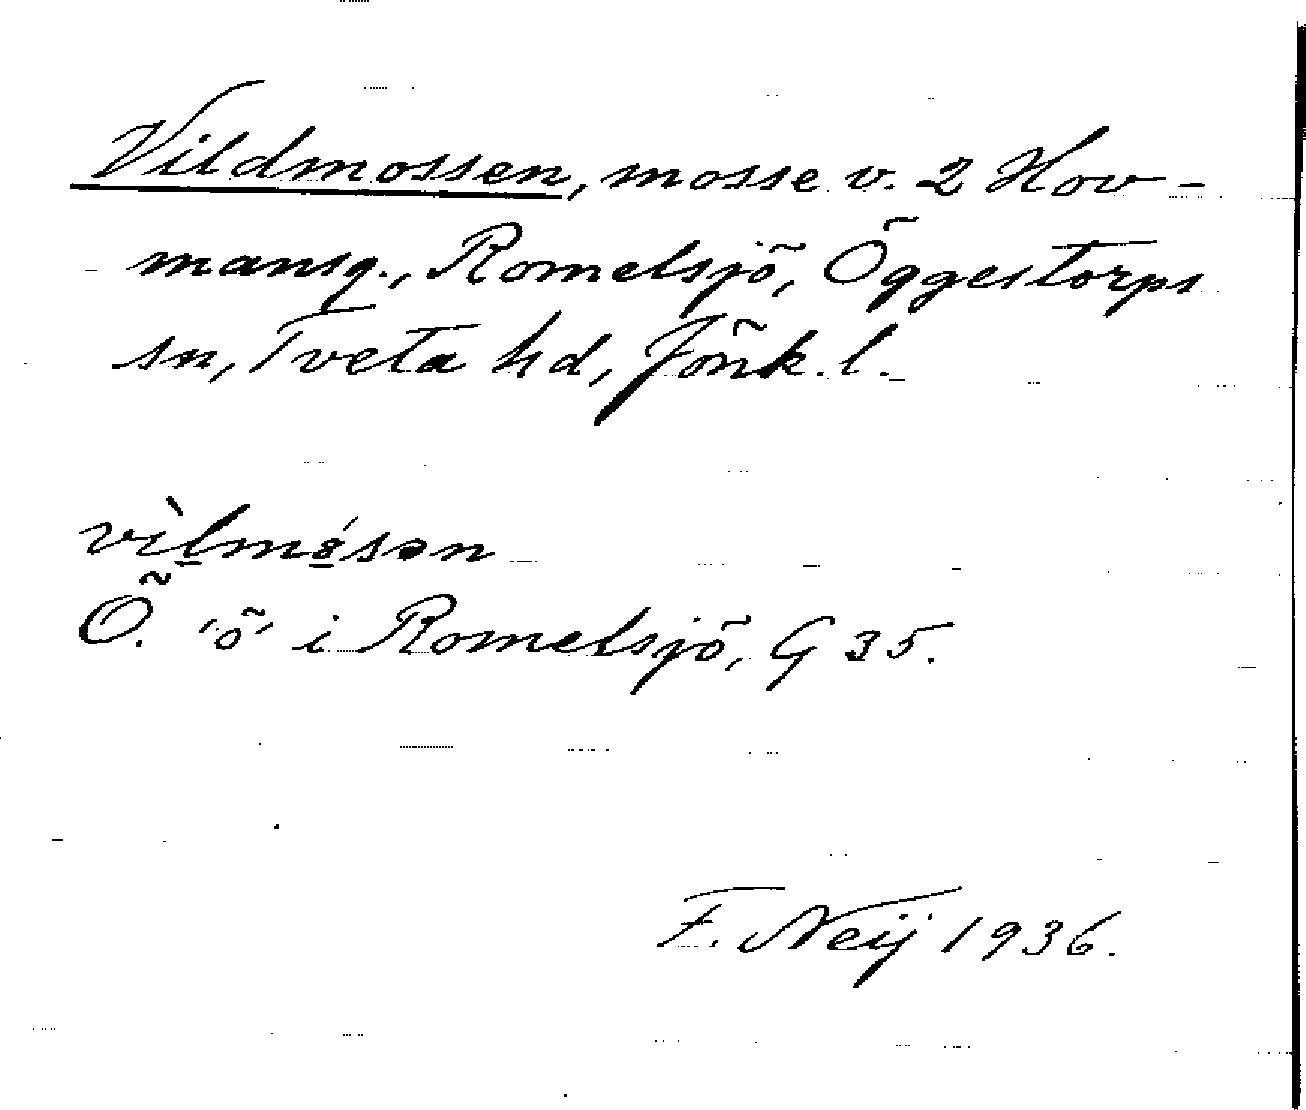 Vildmossen, mosse v. 2 Hov-
mansg., Romelsjö, Öggestorps
sn, Tveta hd, Jönk. l.
Ö. 'ö' i Romelsjö, G 35.
F. Neij 1936.